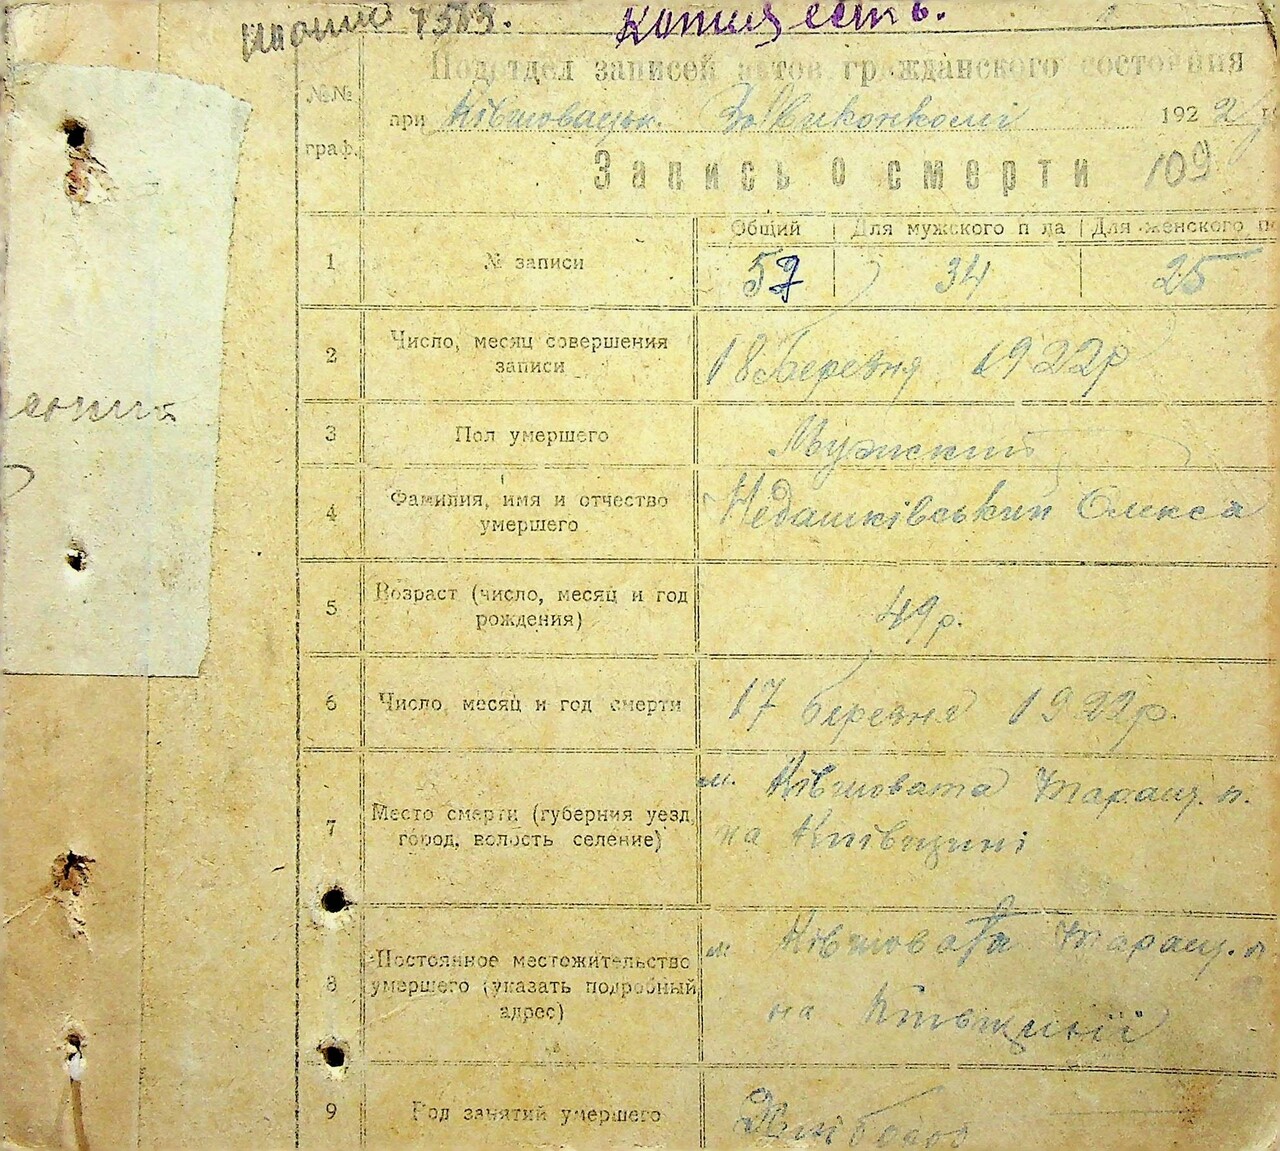 Копия есть.
Подотдел записей актов гражданского состояния
№№ граф.
при Ківшовацьк. Виконкомі 1922
Запись о смерти 109
Общий | Для мужского пола | Для женского
1 № записи 34 25
2 Число, месяц совершения записи 18 березня 1922 р
3 Пол умершего Мужский
4 Фамилия, имя и отчество умершего Недашківський Олекса
5 Возраст (число, месяц и год рождения) 49 р.
6 Число, месяц и год смерти 17 березня 1922 р.
7 Место смерти (губерния уезд, м. Ківшовата Таращ. п.
город, волость селение) на Київщині
8 Постоянное местожительство м. Ківшовата Таращ. п
умершего (указать подробный адрес) на Київщині
9 Род занятий умершего Хлібороб